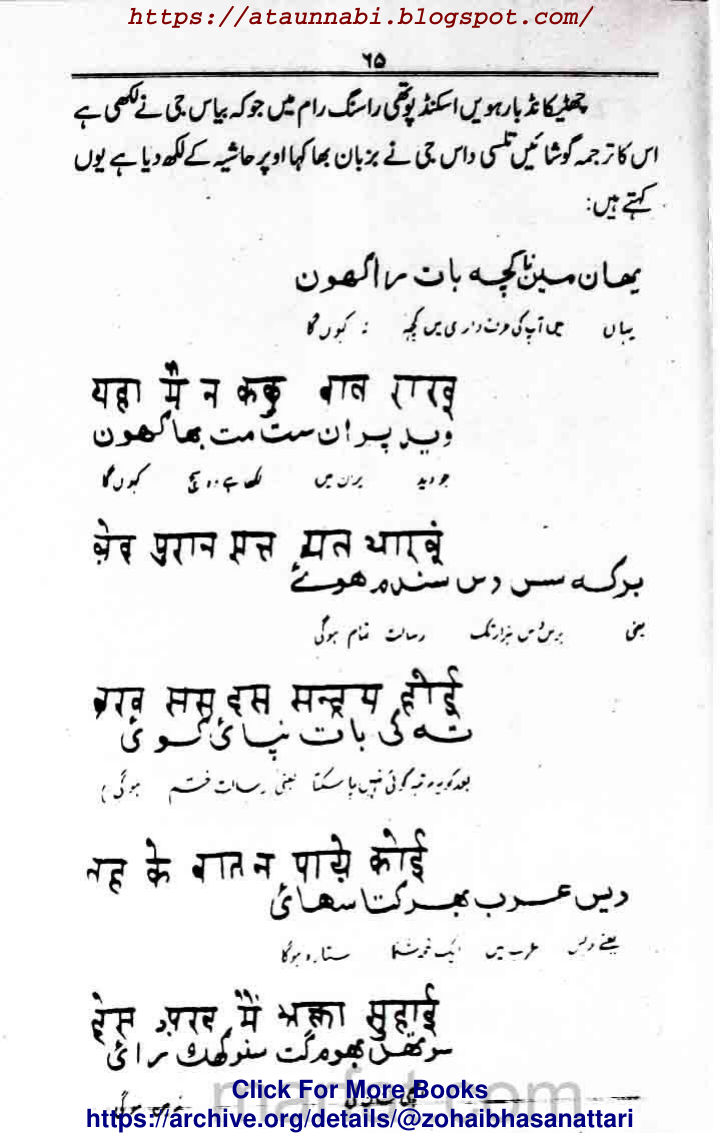 https://ataunnabi.blogspot.com/
٦٥
چھٹیکانڈ بارہویں اسکنڈ پوتھی راسنگ رام میں جو کہ بیاس جی نے لکھی ہے
اس کا ترجمہ گوشائیں تلسی داس جی نے بزبان بھاکہا اوپر حاشیہ کے لکھ دیا ہے یوں
کہتے ہیں:
یھان مین نا کچہ بات راکھون
یہاں میں آپ کی داری میں کچھ نہ کہوں گا
यहा मै न ककु बात राखू
وید پران ست مت بھاکھون
جو وید میں لکھا ہے وہ سچ کہوں گا
बेद पुरान सत मत भाखूं
برکہ سس دس سندر ھوئے
یعنی برس دس ہزار تک رسالت تمام ہوگی
बरख सस दस सन्द्रय होई
تہ کی بات نپائ کوئ
بعد کو یہ مرتبہ کوئی نہیں پا سکتا یعنی رسالت ختم ہوگی
तह के बात न पाये कोई
دیس عرب بھر کتا سھائ
یعنے دیس عرب میں ایک ستارہ ہوگا
देस अरब मैं भ्रक्ता सुहाई
سو تھل بھوم گت سنو کھک رائ
Click For More Books
https://archive.org/details/@zohaibhasanattari